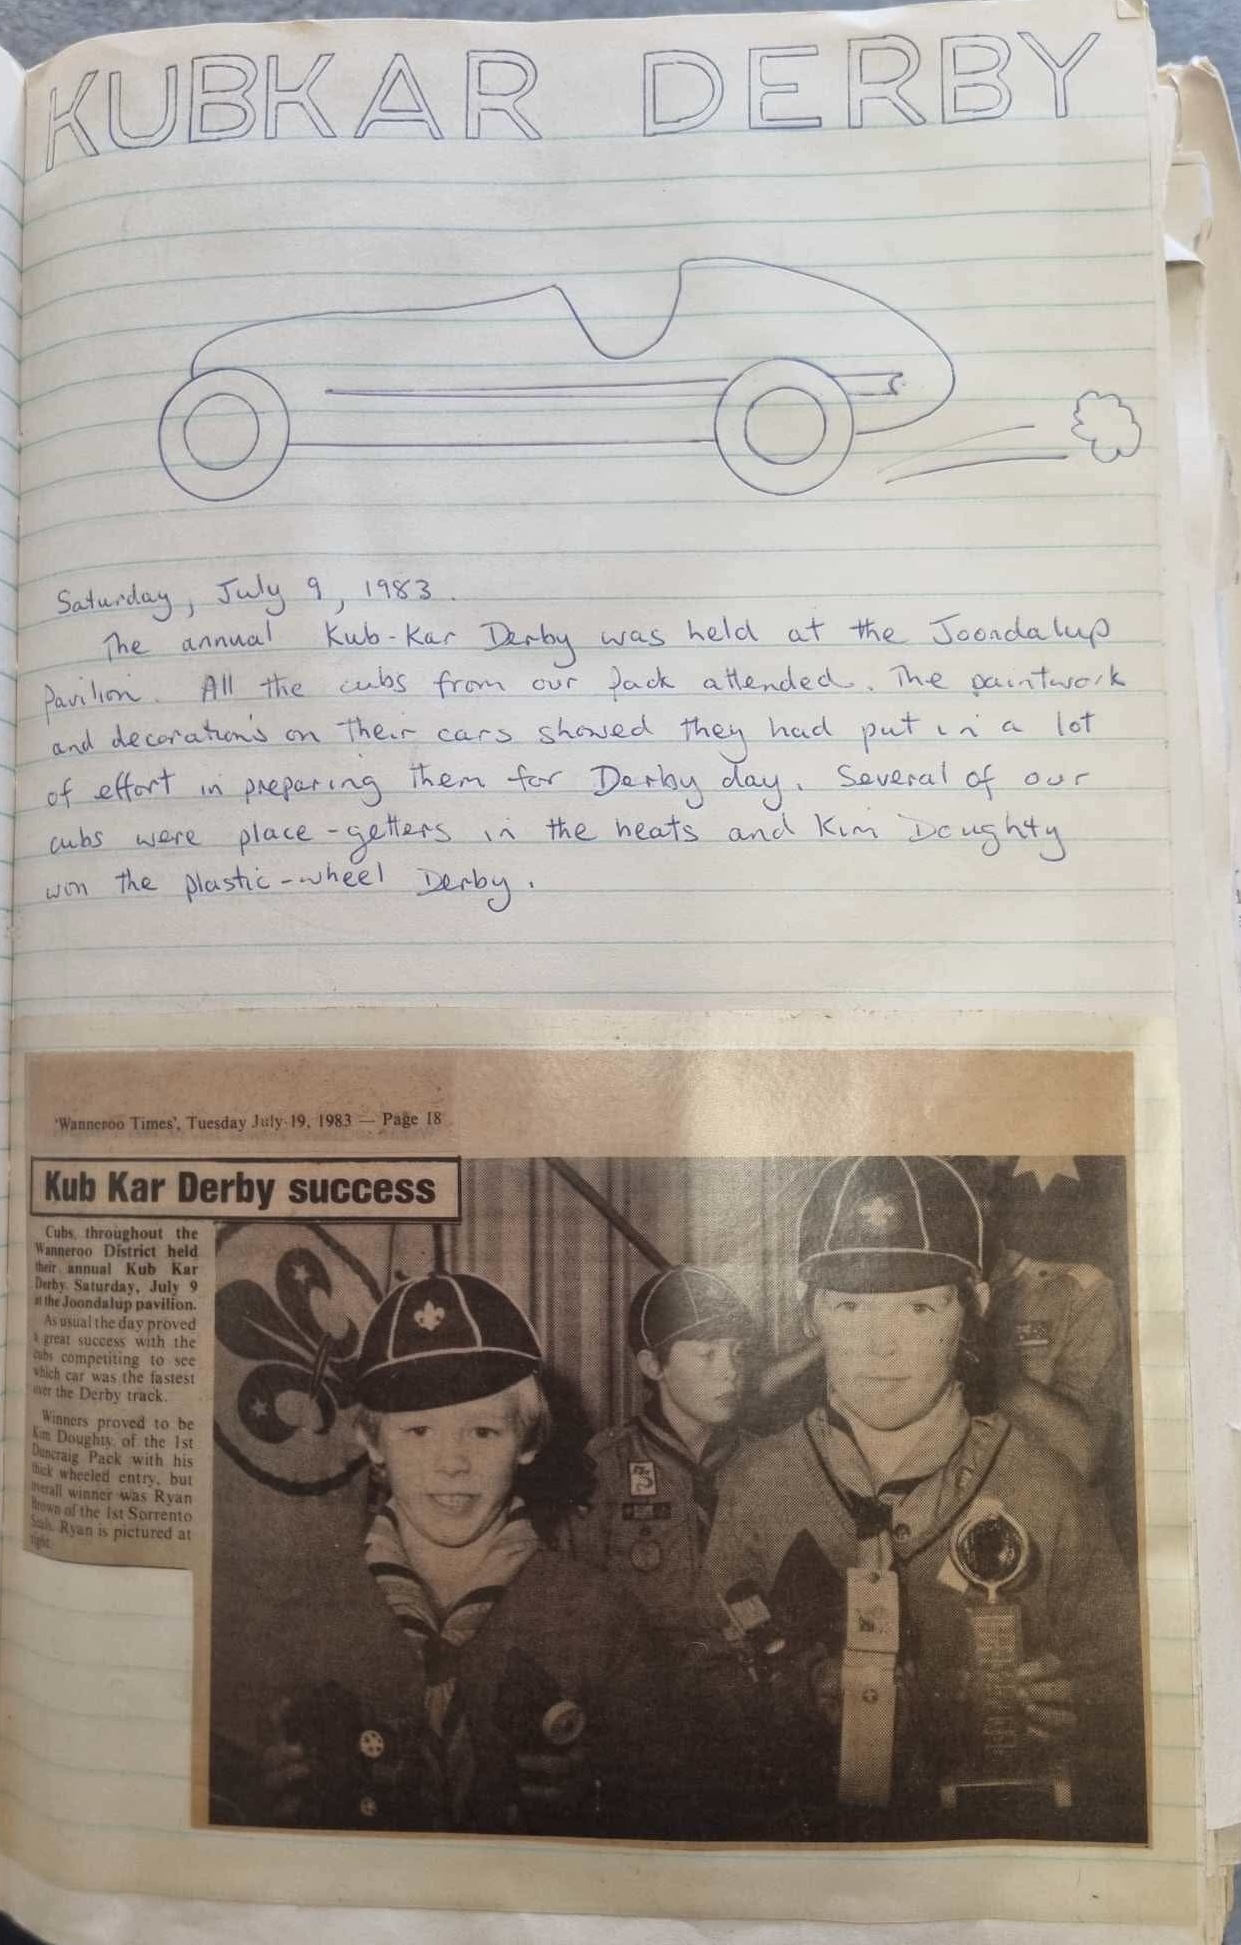 KUBKAR DERBY
Saturday, July 9, 1983.
The annual Kub-Kar Derby was held at the Joondalup
Pavilion. All the cubs from our Pack attended. The paintwork
and decorations on their cars showed they had put in a lot
of effort in preparing them for Derby day. Several of our
cubs were place-getters in the heats and Kim Doughty
won the plastic-wheel Derby.
'Wanneroo Times', Tuesday July 19, 1983 — Page 18
Kub Kar Derby success
Cubs, throughout the
Wanneroo District held
their annual Kub Kar
Derby Saturday, July 9
at the Joondalup pavilion.
As usual the day proved
a great success with the
cubs competiting to see
which car was the fastest
over the Derby track.
Winners proved to be
Kim Doughty of the 1st
Duncraig Pack with his
thick wheeled entry, but
overall winner was Ryan
Brown of the 1st Sorrento
Seals. Ryan is pictured at
right.